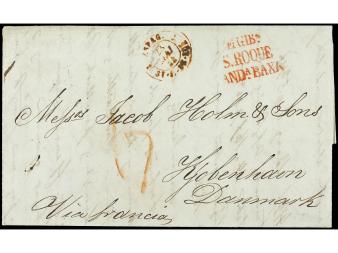 S. ROQUE
ANDA BAXA
Messrs Jacob Holm & Sons
Kjobenhavn
Danmark
Via francia